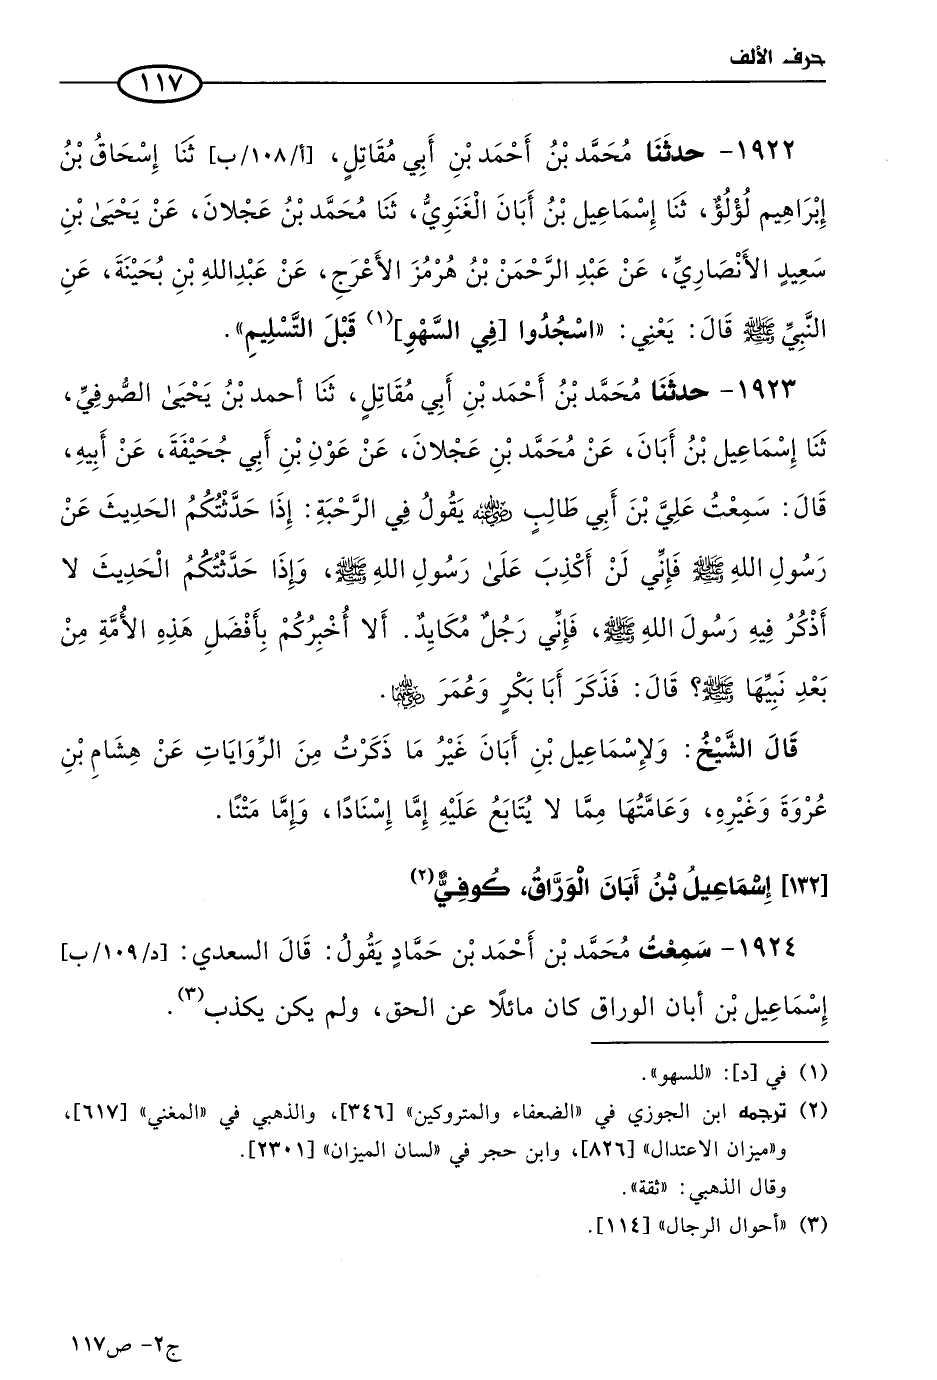 حرف الألف
١١٧
١٩٢٢- حدثَنَا مُحَمَّد بْنُ أَحْمَد بْنِ أَبِي مُقَاتِلٍ، [أ/١٠٨/ب] ثَنَا إِسْحَاقُ بْنُ
إِبْرَاهِيم لُؤْلُؤٌ، ثَنَا إِسْمَاعِيل بْنُ أَبَانَ الْغَنَوِيُّ، ثَنَا مُحَمَّد بْنُ عَجْلانَ، عَنْ يَحْيَىٰ بْنِ
سَعِيدٍ الأَنْصَارِيِّ، عَنْ عَبْدِ الرَّحْمَنْ بْنُ هُرْمُزَ الأَعْرَجِ، عَنْ عَبْدِاللهِ بْنِ بُحَيْنَةَ، عَنِ
النَّبِيِّ ﷺ قَالَ: يَعْنِي: «اسْجُدُوا [فِي السَّهْوِ](١) قَبْلَ التَّسْلِيمِ».
١٩٢٣- حدثَنَا مُحَمَّد بْنُ أَحْمَد بْنِ أَبِي مُقَاتِلٍ، ثَنَا أحمد بْنُ يَحْيَىٰ الصُّوفِيِّ،
ثَنَا إِسْمَاعِيل بْنُ أَبَانَ، عَنْ مُحَمَّد بْنِ عَجْلانَ، عَنْ عَوْنِ بْنِ أَبِي جُحَيْفَةَ، عَنْ أَبِيهِ،
قَالَ: سَمِعْتُ عَلِيَّ بْنَ أَبِي طَالِبٍ رضي الله عنه يَقُولُ فِي الرَّحْبَةِ: إِذَا حَدَّثْتُكُمُ الحَدِيثَ عَنْ
رَسُولِ اللهِ ﷺ فَإِنِّي لَنْ أَكْذِبَ عَلَىٰ رَسُولِ اللهِ ﷺ، وَإِذَا حَدَّثْتُكُمُ الْحَدِيثَ لا
أَذْكُرُ فِيهِ رَسُولَ اللهِ ﷺ، فَإِنِّي رَجُلٌ مُكَايِدٌ. أَلا أُخْبِرُكُمْ بِأَفْضَلِ هَذِهِ الأُمَّةِ مِنْ
بَعْدِ نَبِيِّهَا ﷺ؟ قَالَ: فَذَكَرَ أَبَا بَكْرٍ وَعُمَرَ رضي الله عنهما.
قَالَ الشَّيْخُ: وَلإِسْمَاعِيل بْنِ أَبَانَ غَيْرُ مَا ذَكَرْتُ مِنَ الرِّوَايَاتِ عَنْ هِشَامِ بْنِ
عُرْوَةَ وَغَيْرِهِ، وَعَامَّتُهَا مِمَّا لا يُتَابَعُ عَلَيْهِ إِمَّا إِسْنَادًا، وَإِمَّا مَتْنًا.
[١٣٢] إِسْمَاعِيلُ بْنُ أَبَانَ الْوَرَّاقُ، كُوفِيٌّ(٢)
١٩٢٤- سَمِعْتُ مُحَمَّد بْن أَحْمَد بْن حَمَّادٍ يَقُولُ: قَالَ السعدي: [د/١٠٩/ب]
إِسْمَاعِيل بْن أبان الوراق كان مائلًا عن الحق، ولم يكن يكذب(٣).
(١) في [د]: «للسهو».
(٢) ترجمه ابن الجوزي في «الضعفاء والمتروكين» [٣٤٦]، والذهبي في «المغني» [٦١٧]،
و«ميزان الاعتدال» [٨٢٦]، وابن حجر في «لسان الميزان» [٢٣٠١].
وقال الذهبي: «ثقة».
(٣) «أحوال الرجال» [١١٤].
ج٢- ص١١٧